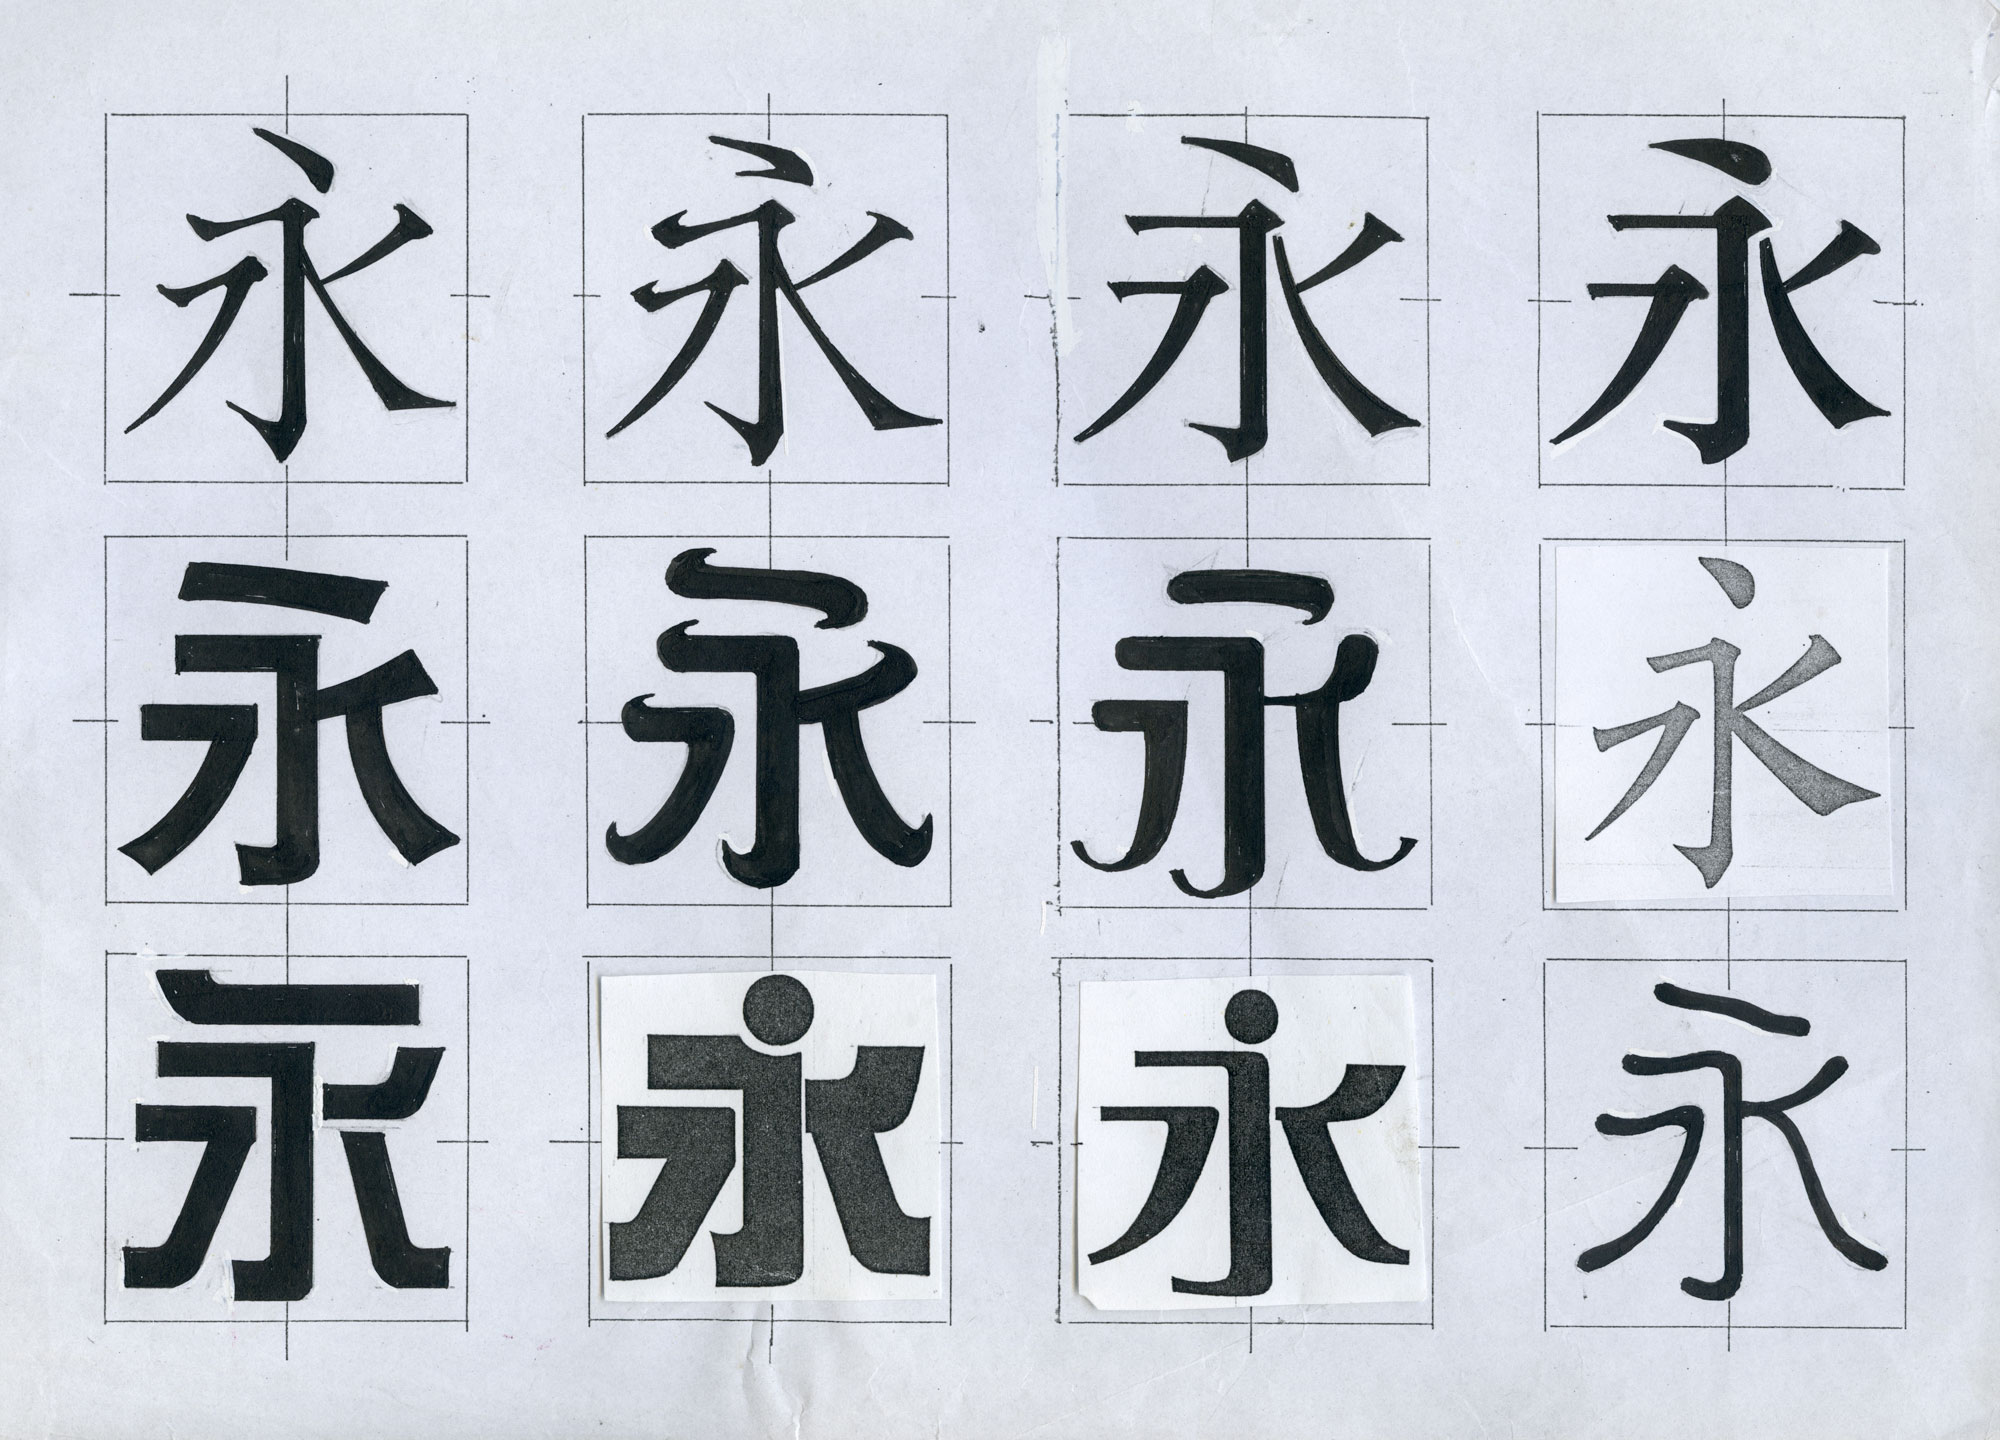 永 永 永 永
永 永 永 永
永 永 永 永